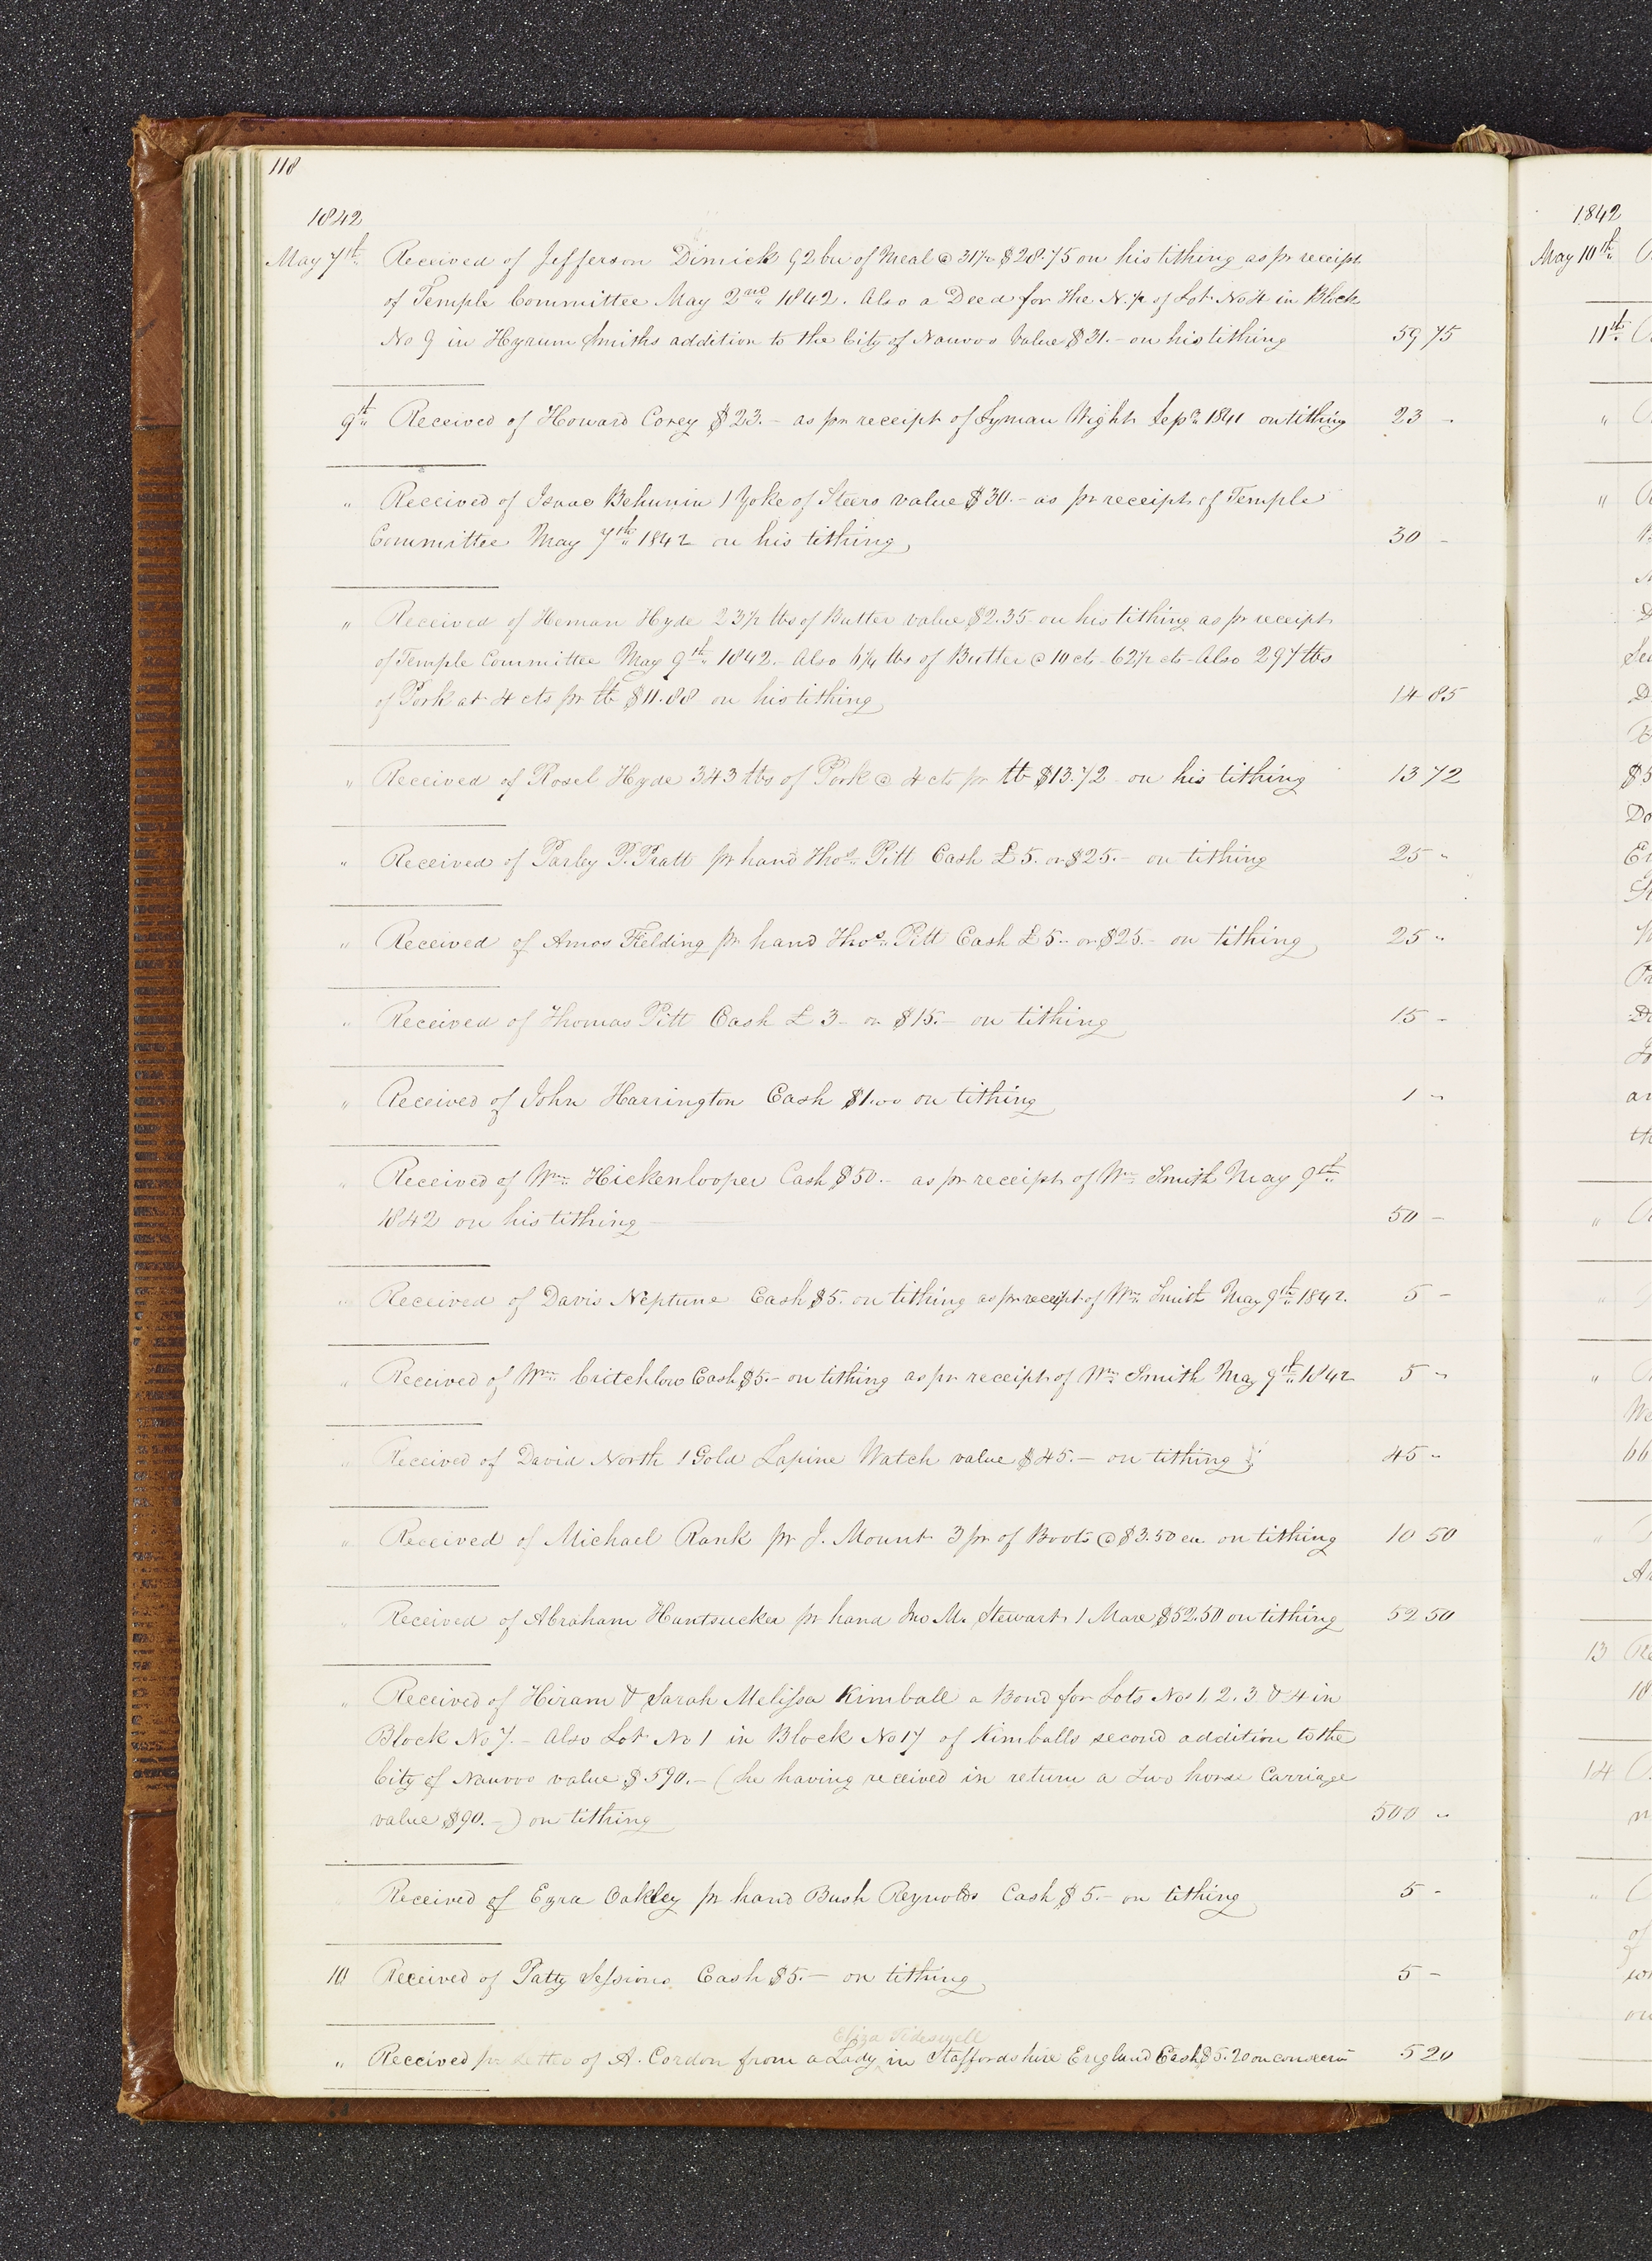 118
1842
May 7th Received of Jefferson Dimick 92 bu of Meal @ 31¼ $28.75 on his tithing as pr receipt
of Temple Committee May 2nd 1842. Also a Deed for the N. ½ of Lot No 4 in Block
No 9 in Hyrum Smiths addition to the City of Nauvoo Value $31.- on his tithing 59 75
9th Received of Howard Corey $23.- as pr receipt of Lyman Wight Sepr 1841 on tithing 23 -
" Received of Isaac Behunin 1 Yoke of Steers value $30.- as pr receipt of Temple
Committee May 7th 1842 on his tithing, 30 -
" Received of Heman Hyde 23½ lbs of Butter value $2.35 on his tithing as pr receipt
of Temple Committee May 9th 1842. Also 6¼ lbs of Butter @ 10 cts - 62½ cts - Also 297 lbs
of Pork at 4 cts pr lb $11.88 on his tithing 14 85
" Received of Rosel Hyde 343 lbs of Pork @ 4 cts pr lb $13.72 on his tithing 13 72
" Received of Parley P. Pratt pr hand Thos Pitt Cash £5. or $25.- on tithing 25 "
" Received of Amos Fielding pr hand Thos Pitt Cash £5- or $25.- on tithing 25 "
" Received of Thomas Pitt Cash £3- or $15.- on tithing 15 -
" Received of John Harrington Cash $1.00 on tithing 1 "
" Received of Wm Hickenlooper Cash $50.- as pr receipt of Wm Smith May 9th
1842 on his tithing 50 -
" Received of Davis Neptune Cash $5. on tithing as pr receipt of Wm Smith May 9th 1842. 5 -
" Received of Wm Critchlow Cash $5.- on tithing as pr receipt of Wm Smith May 9th 1842 5 "
" Received of David North 1 Gold Lapine Watch value $45.- on tithing 45 "
" Received of Michael Rank pr J. Mount 3 pr of Boots @ $3.50 ea on tithing 10 50
" Received of Abraham Huntsucker pr hand Jno M. Stewart 1 Mare $52.50 on tithing 52 50
" Received of Hiram & Sarah Melissa Kimball a Bond for Lots Nos 1, 2, 3 & 4 in
Block No 7.- Also Lot No 1 in Block No 17 of Kimballs second addition to the
City of Nauvoo value $590.- (he having received in return a two horse Carriage
value $90.-) on tithing 500 "
Received of Ezra Oakley pr hand Bush Reynolds Cash $5.- on tithing 5 -
10 Received of Patty Sessions Cash $5.- on tithing 5 -
Eliza Tideswell
" Received pr letter of A. Cordon from a Lady in Staffordshire England Cash $5.20 on consecrn 5 20
1842
May 10th
11th
"
"
"
"
"
"
13
14
"